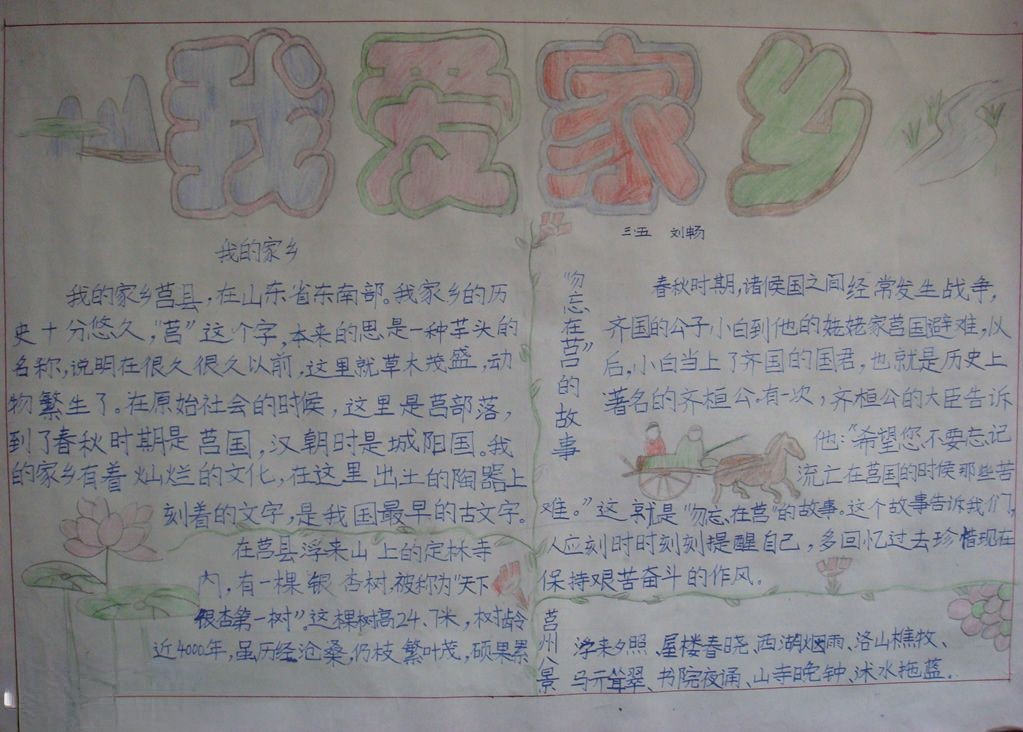 我爱家乡
三·五 刘畅
我的家乡
我的家乡莒县,在山东省东南部。我家乡的历
史十分悠久,"莒"这个字,本来的思是一种芋头的
名称,说明在很久很久以前,这里就草木茂盛,动
物繁生了。在原始社会的时候,这里是莒部落,
到了春秋时期是莒国,汉朝时是城阳国。我
的家乡有着灿烂的文化,在这里出土的陶器上
刻着的文字,是我国最早的古文字。
在莒县浮来山上的定林寺
内,有一棵银杏树,被称为"天下
银杏第一树"。这棵树高24.7米,树龄
近4000年,虽历经沧桑,仍枝繁叶茂,硕果累
"勿忘在莒"的故事
春秋时期,诸候国之间经常发生战争,
齐国的公子小白到他的姥姥家莒国避难,以
后,小白当上了齐国的国君,也就是历史上
著名的齐桓公.有一次,齐桓公的大臣告诉
他:"希望您不要忘记
流亡在莒国的时候那些苦
难。"这就是"勿忘在莒"的故事。这个故事告诉我们,
人应刻时时刻刻提醒自己,多回忆过去珍惜现在
保持艰苦奋斗的作风。
莒州八景
浮来夕照、屋楼春晓、西湖烟雨、洛山樵牧、
马亓耸翠、书院夜诵、山寺晚钟、沭水拖蓝.